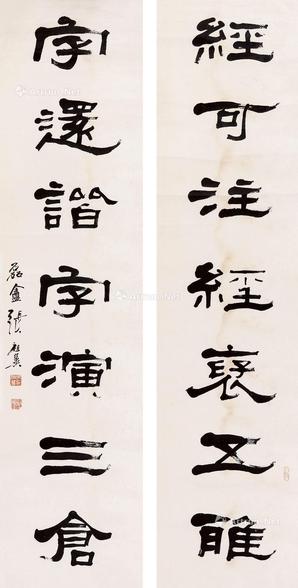 經可注經裒五雅
字還諧字演三倉
磊盦張祖翼